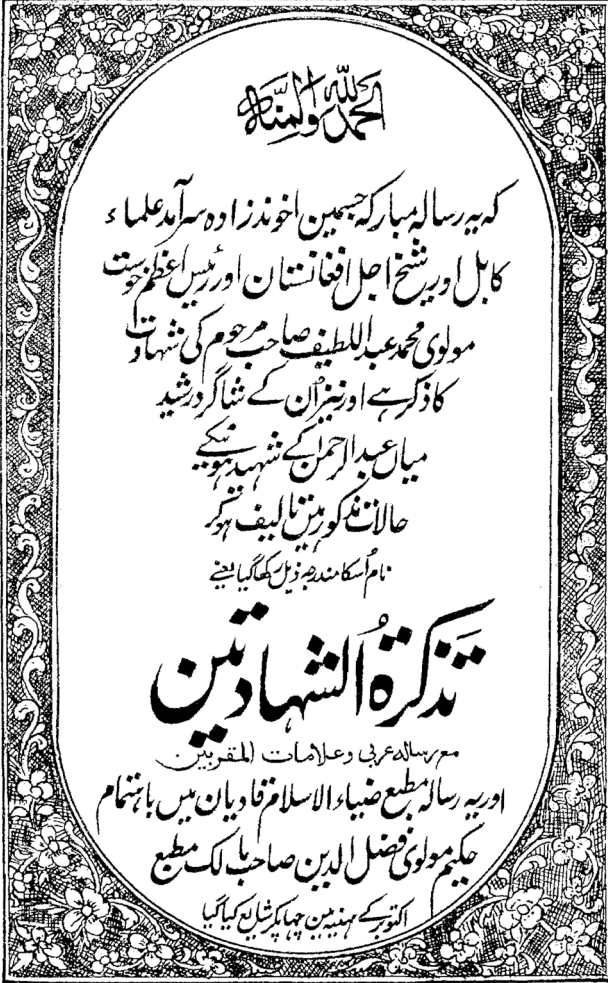 الحمد للہ والمنۃ
کہ یہ رسالہ مبارکہ جسمین اخوندزادہ سرآمد علماء
کابل اور شیخ اجل افغانستان اور رئیس اعظم خوست
مولوی محمد عبد اللطیف صاحب مرحوم کی شہادت
کا ذکر ہے اور نیز اُن کے شاگرد رشید
میاں عبدالرحمٰن کے شہید ہونیکے
حالات مذکور ہین تالیف ہو کر
نام اُسکا مندرجہ ذیل رکھا گیا یعنے
تذکرۃُ الشہادتین
مع رسالہ عربی و علامات المقربین
اور یہ رسالہ مطبع ضیاء الاسلام قادیان میں باہتمام
حکیم مولوی فضل الدین صاحب مالک مطبع
اکتوبر کے مہینہ مین چھاپکر شایع کیا گیا